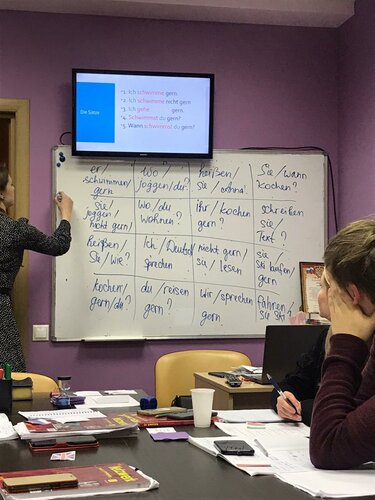 Die Sätze
1. Ich schwimme gern.
2. Ich schwimme nicht gern
3. Ich gehe gern.
4. Schwimmst du gern?
5. Wann schwimmst du gern?
er/
schwimmen/
gern
wo/
joggen/du?
heißen/
Sie/
Sie/wann
kochen?
Sie/
joggen/
nicht gern
wo/du
wohnen?
ihr/kochen
gern?
schreiben
Sie/
Text?
heißen/
Sie/wie?
Ich/Deutsch
sprechen
nicht gern/
sie/lesen
sie/
Ski laufen/
gern
kochen/
gern/du?
du/reisen
gern?
Wir/sprechen
gern
fahren/
Sie Ski?